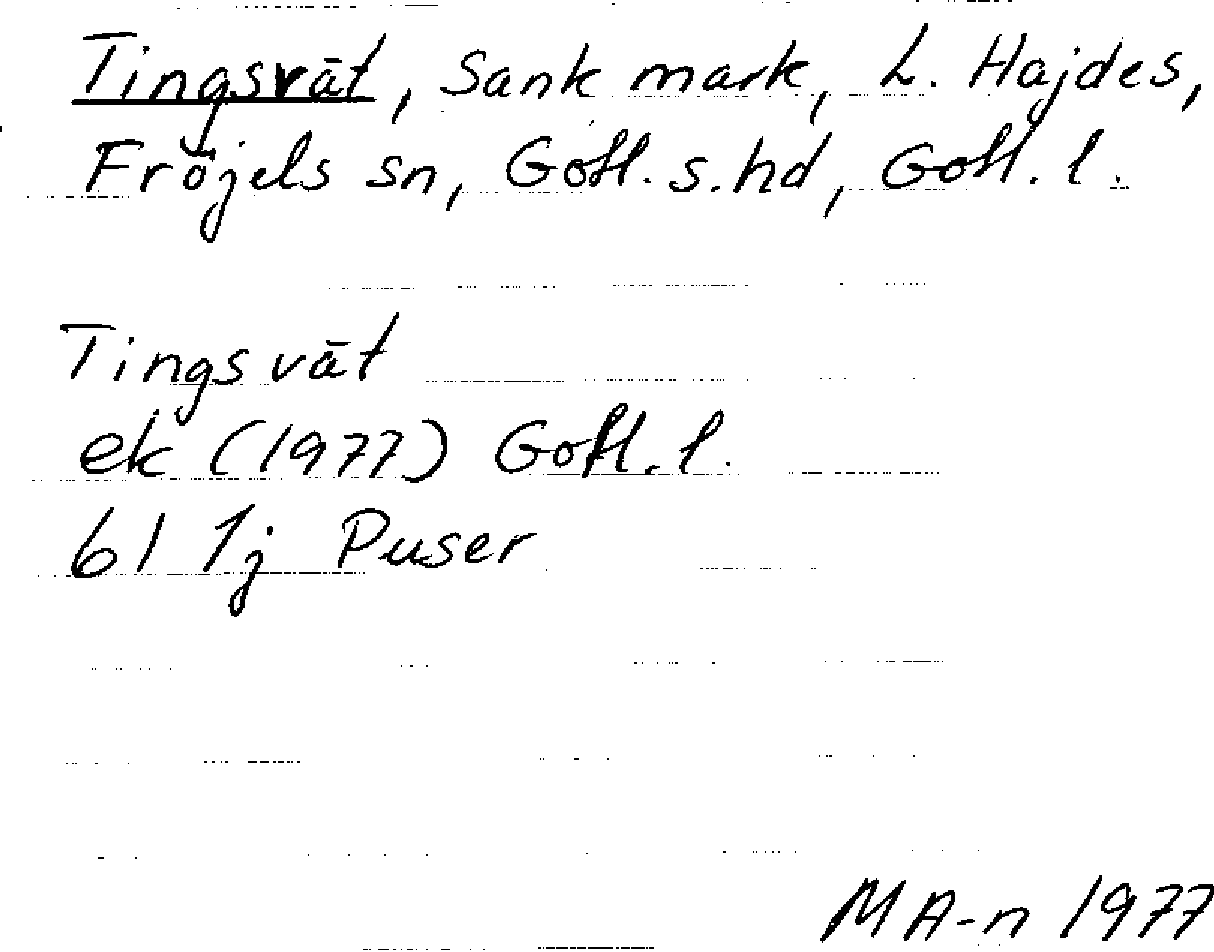 Tingsvät, Sank mark, L. Hajdes,
Fröjels sn, Gotl. s. hd, Gotl. l.
Tingsvät
ek (1977) Gotl. l.
6I 1j Puser
MA-n 1977